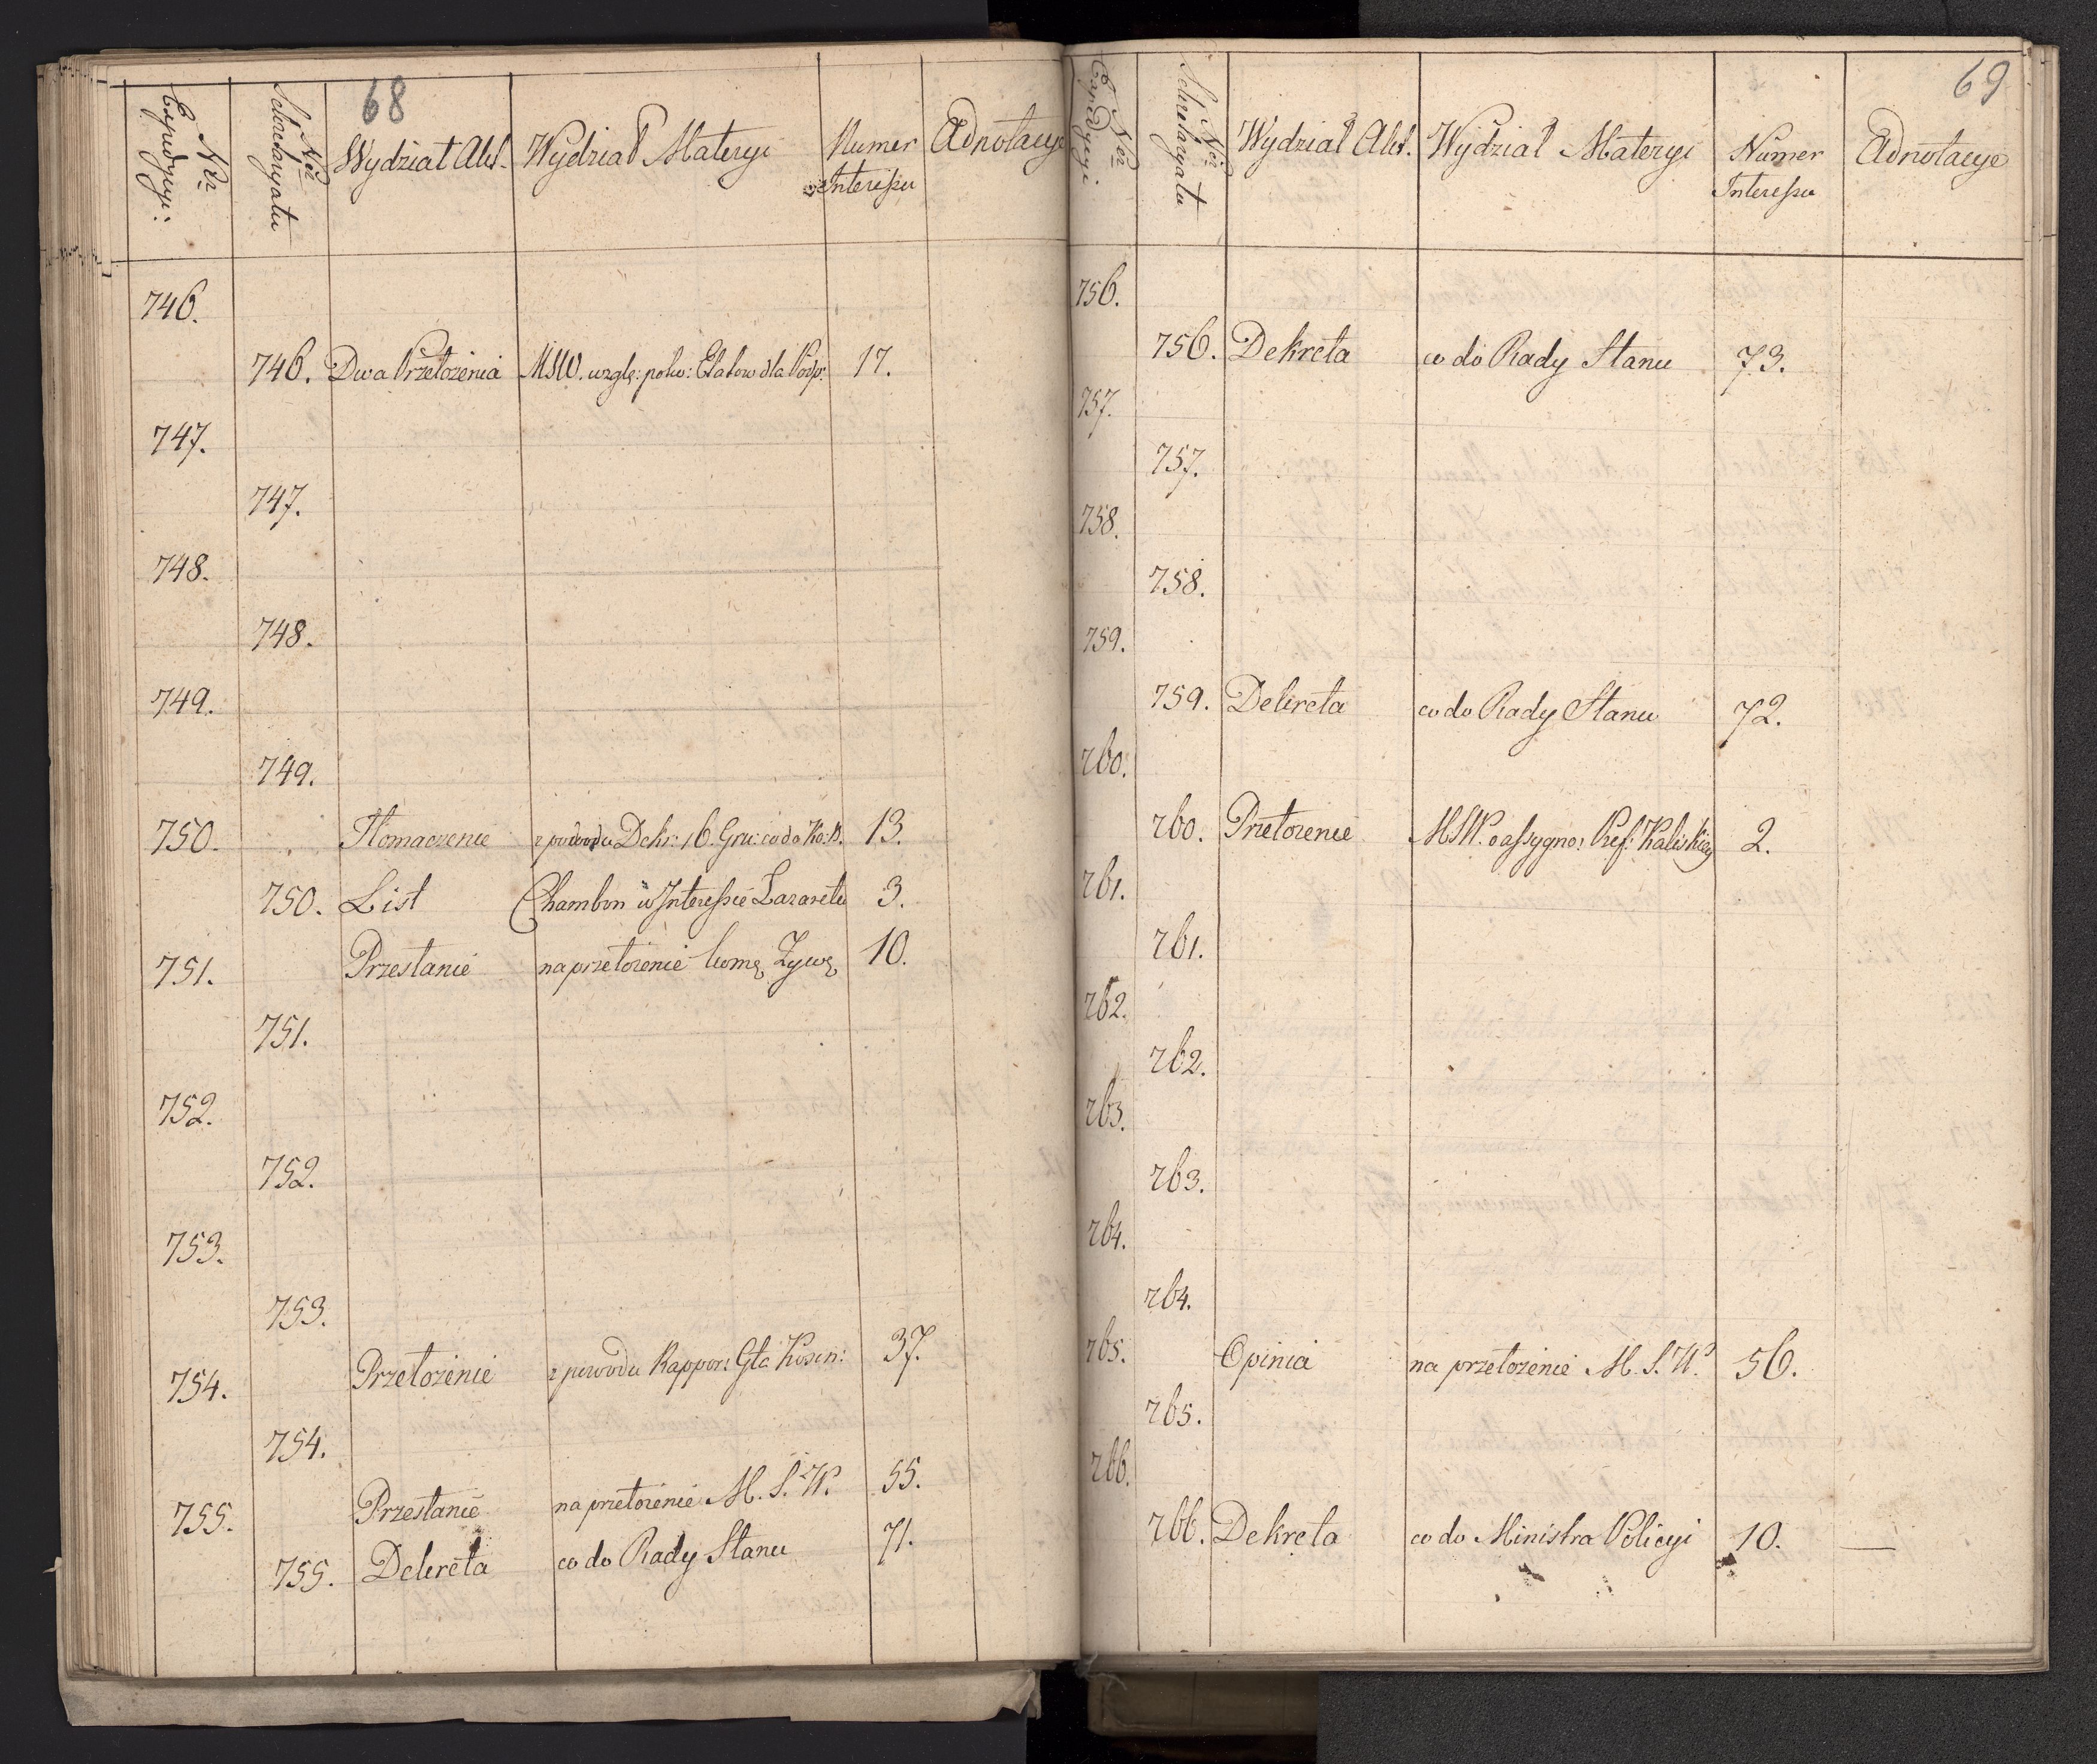 68
Nr Expedycyi:
Nr Sekretaryatu
Wydział Akt.
Wydział Materyi
Numer Interessu
Adnotacye
746.
746. Dwa Przełożenia MSW. wzglę: polw: Etatow dla Podp: 17.
747.
747.
748.
748.
749.
749.
750. Tłomaczenie z powodu Dekr: 16. Gru: co do 13.
750. List Chambon w Interessie Lazaretu 3.
751. Przesłanie na przełożenie Żywą 10.
751.
752.
752.
753.
753.
754. Przełożenie z powodu Rappor: Gła Kosin: 37.
754.
755. Przesłanie na przełożenie M. S. W. 55.
755. Dekreta co do Rady Stanu 71.
69
Nr Expedycyi
Nr Sekretaryatu
Wydział Akt.
Wydział Materyi
Numer Interessu
Adnotacye
756.
756. Dekreta co do Rady Stanu 73.
757.
757.
758.
758.
759.
759. Dekreta co do Rady Stanu 72.
760.
760. Przełożenie MSW. o assygno: Pref: Kaliskiey 2.
761.
761.
762.
762.
763.
763.
764.
764.
765. Opinia na przełożenie M. S. W. 56.
765.
766.
766. Dekreta co do Ministra Policyi 10. —